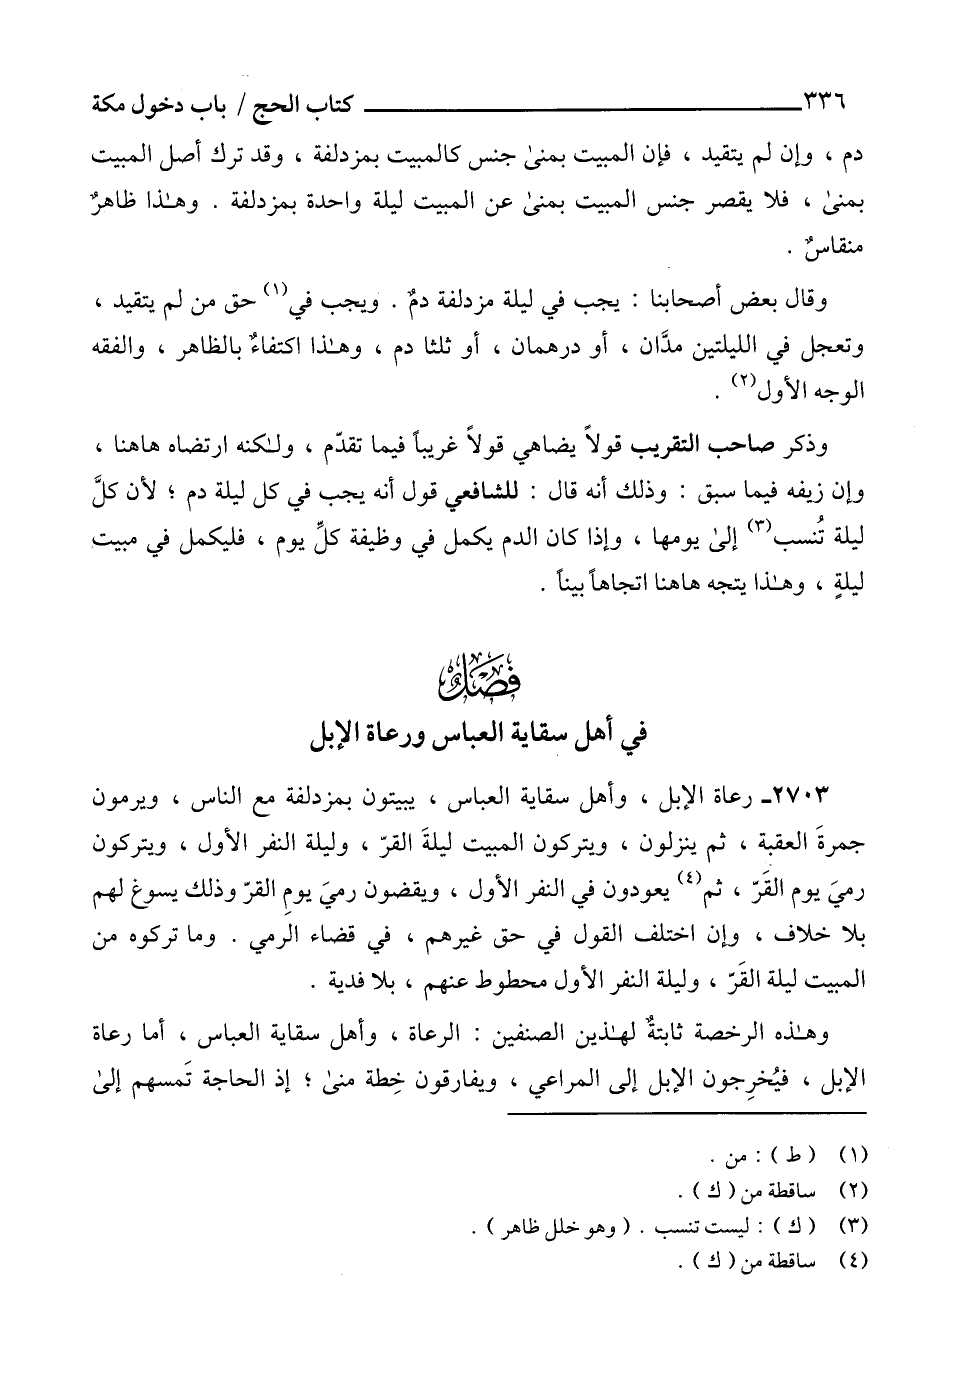 ٣٣٦ ــــــــــــــــــــــــــــــــــــــــــــــ كتاب الحج / باب دخول مكة
دم ، وإن لم يتقيد ، فإن المبيت بمنىٰ جنس كالمبيت بمزدلفة ، وقد ترك أصل المبيت
بمنىٰ ، فلا يقصر جنس المبيت بمنىٰ عن المبيت ليلة واحدة بمزدلفة . وهـٰذا ظاهرٌ
منقاسٌ .
وقال بعض أصحابنا : يجب في ليلة مزدلفة دمٌ . ويجب في(١) حق من لم يتقيد ،
وتعجل في الليلتين مدَّان ، أو درهمان ، أو ثلثا دم ، وهـٰذا اكتفاءٌ بالظاهر ، والفقه
الوجه الأول(٢) .
وذكر صاحب التقريب قولاً يضاهي قولاً غريباً فيما تقدّم ، ولـٰكنه ارتضاه هاهنا ،
وإن زيفه فيما سبق : وذلك أنه قال : للشافعي قول أنه يجب في كل ليلة دم ؛ لأن كلَّ
ليلة تُنسب(٣) إلىٰ يومها ، وإذا كان الدم يكمل في وظيفة كلِّ يوم ، فليكمل في مبيت
ليلةٍ ، وهـٰذا يتجه هاهنا اتجاهاً بيناً .
فصل
في أهل سقاية العباس ورعاة الإبل
٢٧٠٣ـ رعاة الإبل ، وأهل سقاية العباس ، يبيتون بمزدلفة مع الناس ، ويرمون
جمرةَ العقبة ، ثم ينزلون ، ويتركون المبيت ليلةَ القرّ ، وليلة النفر الأول ، ويتركون
رميَ يوم القَرّ ، ثم(٤) يعودون في النفر الأول ، ويقضون رميَ يومِ القرّ وذلك يسوغ لهم
بلا خلاف ، وإن اختلف القول في حق غيرهم ، في قضاء الرمي . وما تركوه من
المبيت ليلة القَرّ ، وليلة النفر الأول محطوط عنهم ، بلا فدية .
وهـٰذه الرخصة ثابتةٌ لهـٰذين الصنفين : الرعاة ، وأهل سقاية العباس ، أما رعاة
الإبل ، فيُخرِجون الإبل إلى المراعي ، ويفارقون خِطة منىٰ ؛ إذ الحاجة تَمسهم إلىٰ
(١) ( ط ) : من .
(٢) ساقطة من ( ك ) .
(٣) ( ك ) : ليست تنسب . ( وهو خلل ظاهر ) .
(٤) ساقطة من ( ك ) .